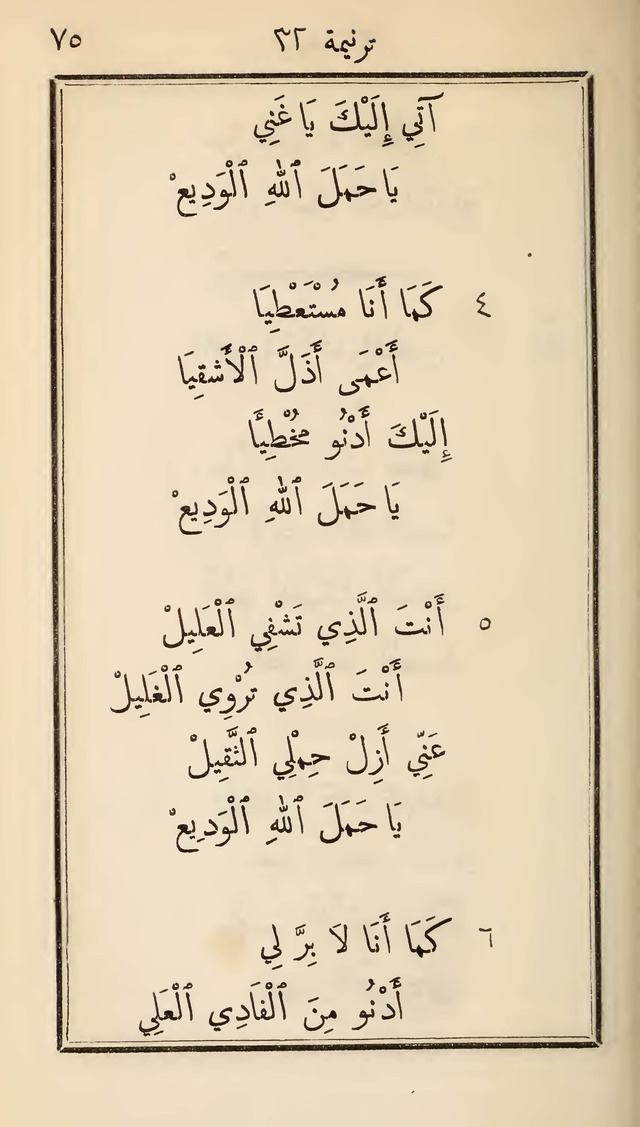 ترنيمة ٣٢ ٧٥
آتِي إِلَيْكَ يَا غَنِي
يَا حَمَلَ ٱللهِ ٱلْوَدِيعْ
٤ كَمَا أَنَا مُسْتَعْطِيَا
أَعْمَى أَذَلَّ ٱلْأَشقِيَا
إِلَيْكَ أَدْنُو مُخْطِيًَا
يَا حَمَلَ ٱللهِ ٱلْوَدِيعْ
٥ أَنْتَ ٱلَّذِي تَشْفِي ٱلْعَلِيلْ
أَنْتَ ٱلَّذِي تُرْوِي ٱلْغَلِيلْ
عَنِّي أَزِلْ حِمْلِي ٱلثَّقِيلْ
يَا حَمَلَ ٱللهِ ٱلْوَدِيعْ
٦ كَمَا أَنَا لاَ بِرَّ لِي
أَدْنُو مِنَ ٱلْفَادِي ٱلْعَلِي